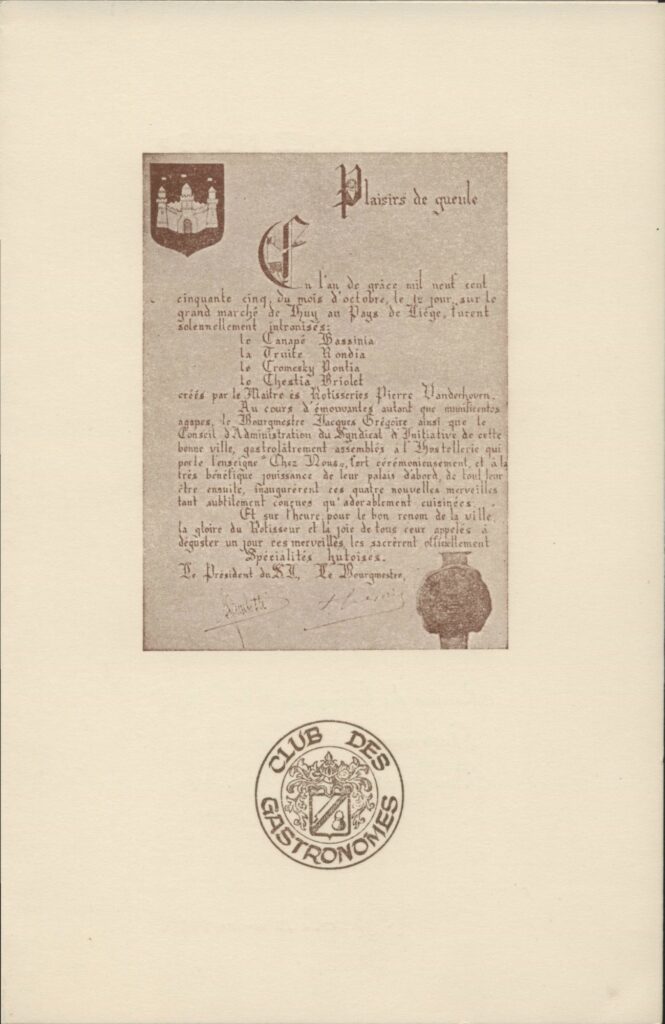 Plaisirs de gueule
En l'an de grâce mil neuf cent
cinquante cinq, du mois d'octobre, le 12 jour, sur le
grand marché de Huy au Pays de Liége, furent
solennellement intronisés:
le Canapé Bassinia
la Truite Rondia
le Cromesky Pontia
le Chestia Briolet
créés par le Maître ès Rotisseries Pierre Vanderhoven.
Au cours d'émouvantes autant que munificentes
agapes, le Bourgmestre Jacques Grégoire ainsi que le
Conseil d'Administration du Syndicat d'Initiative de cette
bonne ville, gastrolâtrement assemblés à l'Hostellerie qui
porte l'enseigne "Chez Nous", fort cérémonieusement, et à la
très bénéfique jouissance de leur palais d'abord, de tout leur
être ensuite, inaugurèrent ces quatre nouvelles merveilles
tant subtilement conçues qu'adorablement cuisinées.
Et sur l'heure, pour le bon renom de la ville,
la gloire du Rotisseur et la joie de tous ceux appelés à
déguster un jour ces merveilles, les sacrèrent officiellement
Spécialités hutoises.
Le Président du S.I., Le Bourgmestre,
CLUB DES
GASTRONOMES